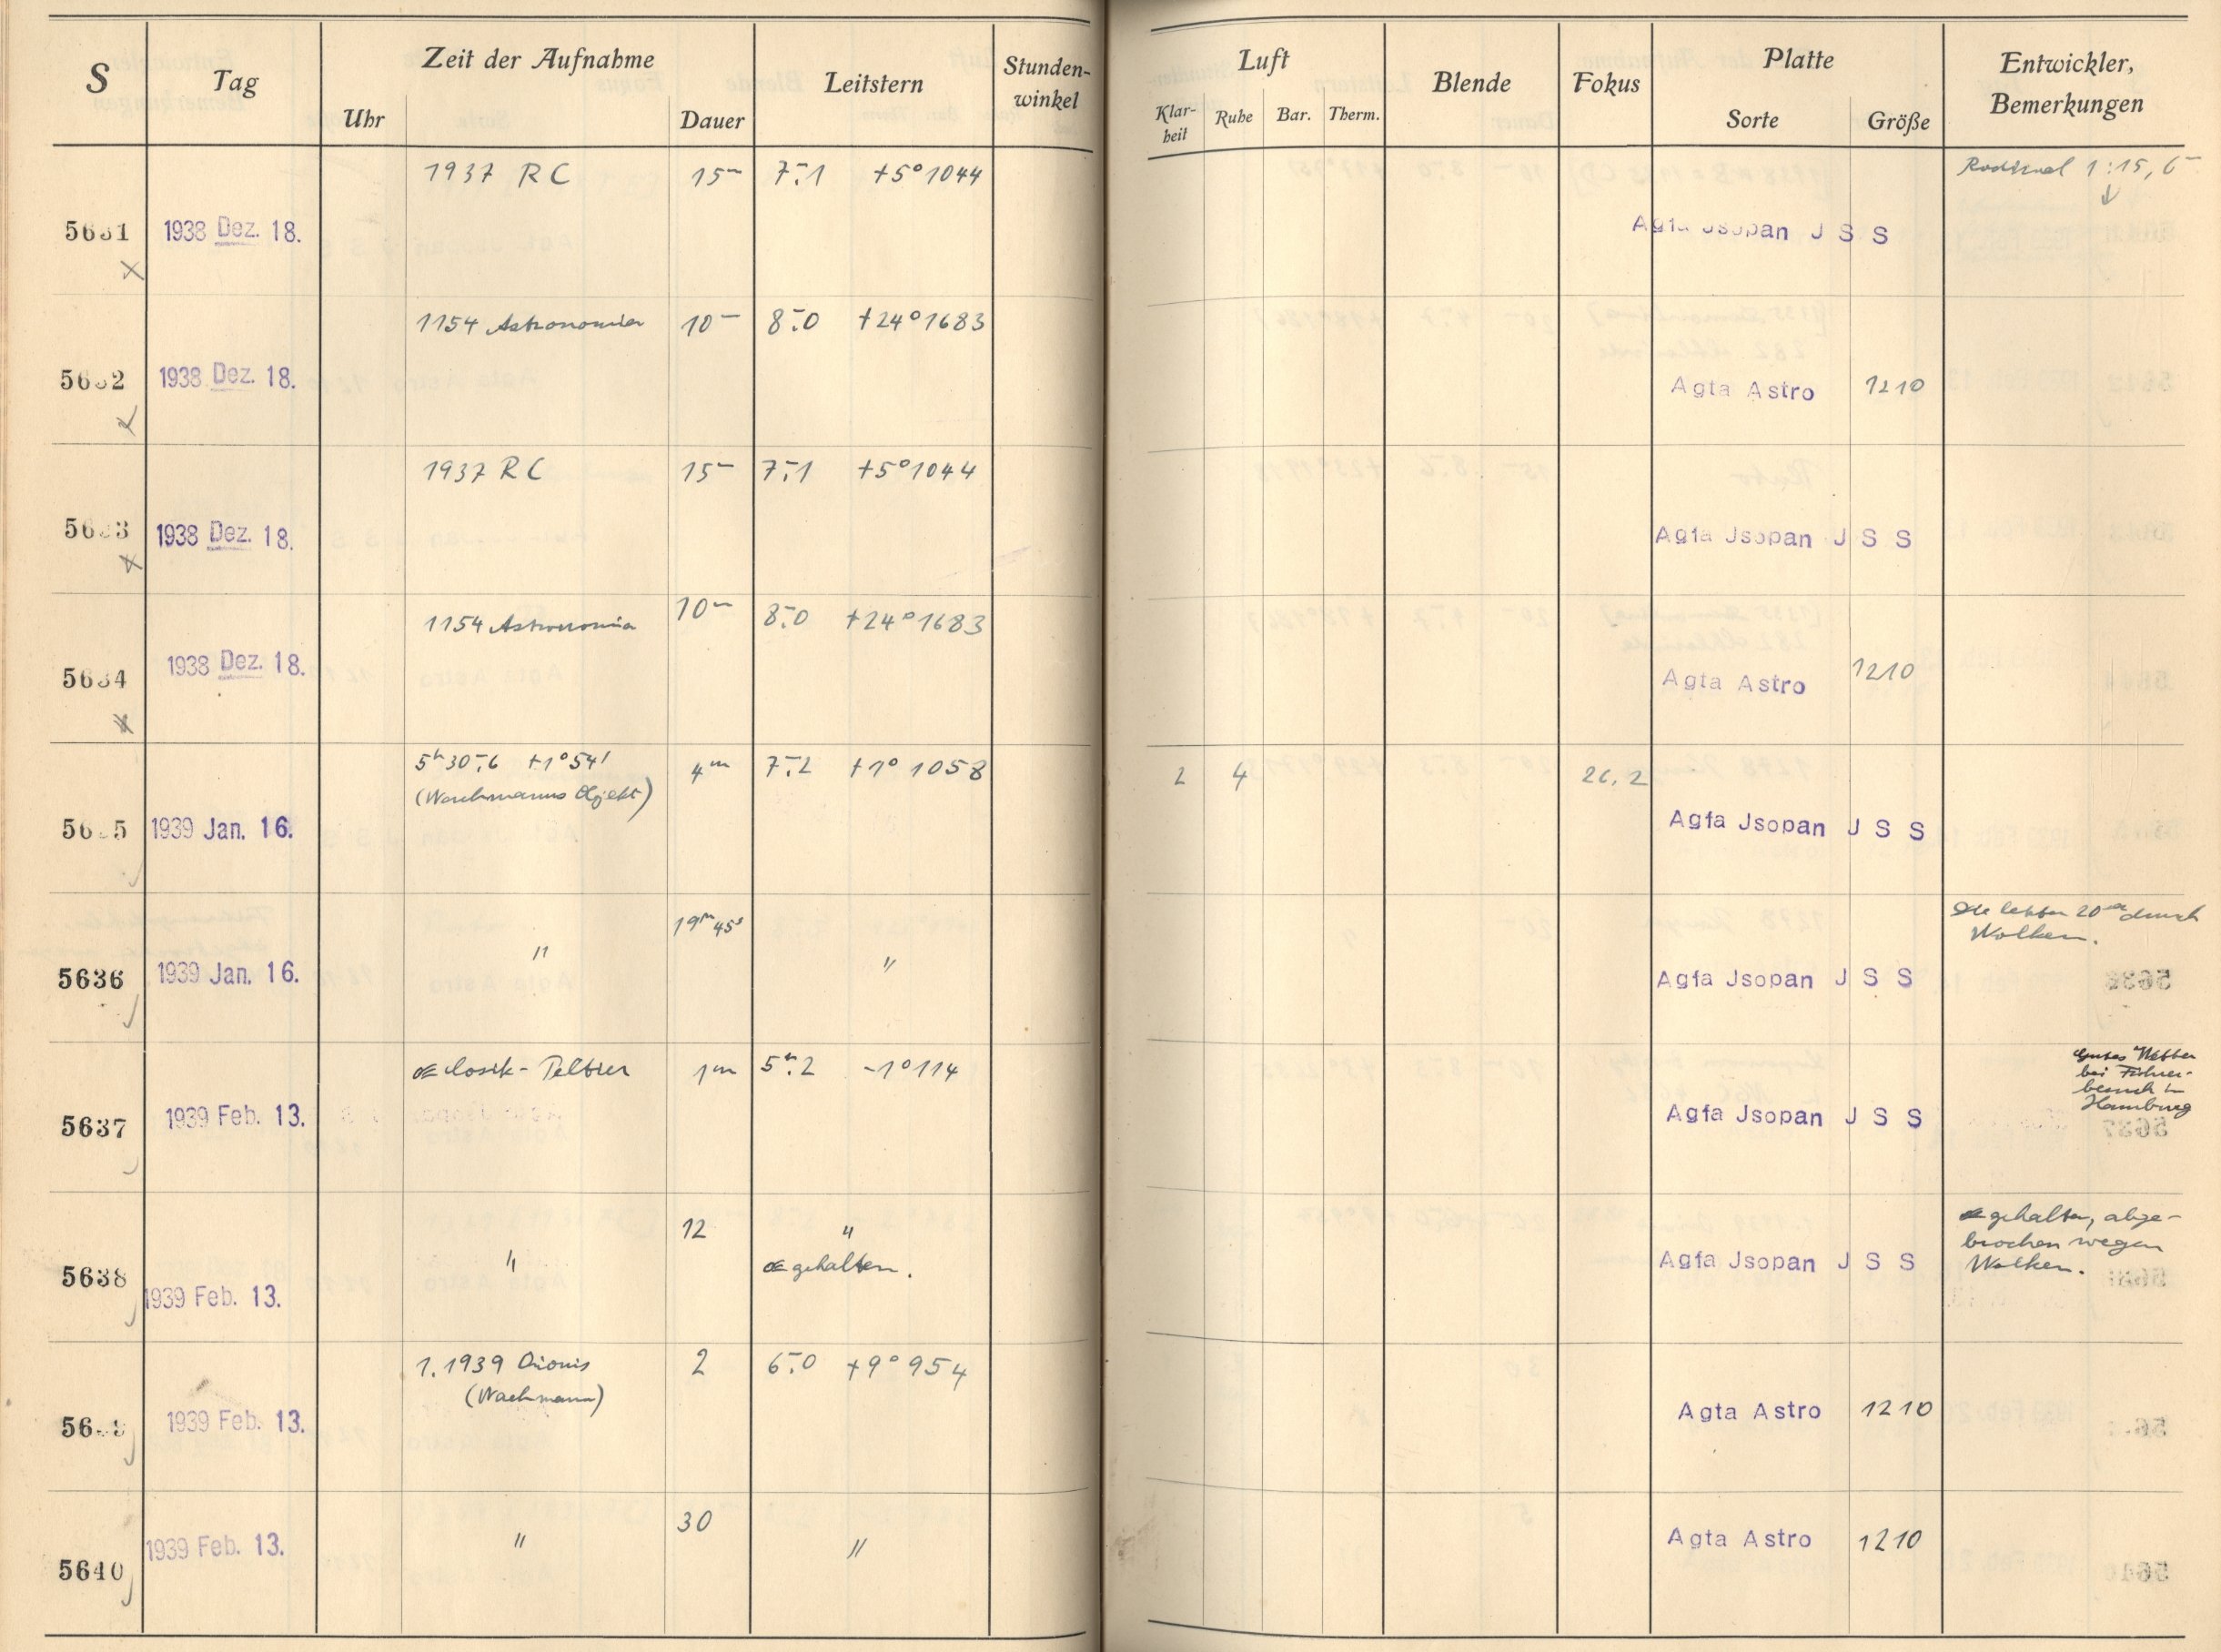 S Tag Zeit der Aufnahme Leitstern Stunden-winkel Luft Blende Fokus Platte Entwickler, Bemerkungen
Uhr Dauer Klar-heit Ruhe Bar. Therm. Sorte Größe
1937 RC 15m 7m.1 +5°1044 Rodinal 1:15, 6m
5631 1938 Dez. 18. Agfa Jsopan J S S
1154 Astronomia 10m 8m.0 +24°1683
5632 1938 Dez. 18. Agfa Astro 1210
1937 RC 15m 7m.1 +5°1044
5633 1938 Dez. 18. Agfa Jsopan J S S
1154 Astronomia 10m 8m.0 +24°1683
5634 1938 Dez. 18. Agfa Astro 1210
5h30m.6 +1°54' 4m 7m.2 +1°1058 2 4 26,2
(Wachmanns Objekt)
5635 1939 Jan. 16. Agfa Jsopan J S S
19m45s Die letzten 20s durch
Wolken.
5636 1939 Jan. 16. " " Agfa Jsopan J S S
☄ Cosik-Peltier 1m 5m.2 -1°114 Gutes Wetter
bei Führer-
besuch in
Hamburg
5637 1939 Feb. 13. Agfa Jsopan J S S
" 12 " ☄ gehalten, abge-
☄ gehalten. brochen wegen
Wolken.
5638 1939 Feb. 13. Agfa Jsopan J S S
1.1939 Orionis 2 6m.0 +9°954
(Wachmann)
5639 1939 Feb. 13. Agfa Astro 1210
30
5640 1939 Feb. 13. " " Agfa Astro 1210